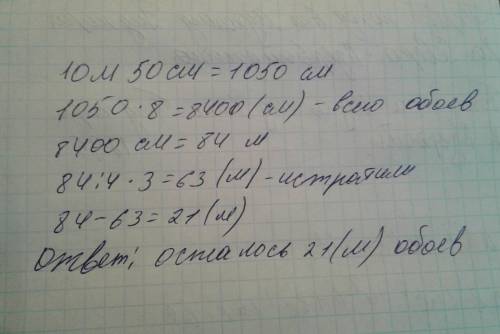 10м 50см = 1050 см
1050 · 8 = 8400 (см) - всего обоев
8400 см = 84 м
84:4 · 3 = 63 (м) - истратили
84 - 63 = 21 (м)
Ответ: осталось 21 (м) обоев